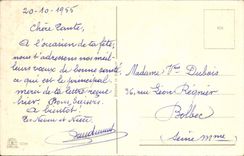 20-10-1955
Chère Tante,
A l'occasion de ta fête,
nous t'adressons nos meil-
leurs vœux de bonne santé
ce qui est le principal
merci de ta lettre
Bons baisers.
A bientôt!
Madame Vve Dubois
36, rue Léon Régnier
Bolbec
(Seine Mme)